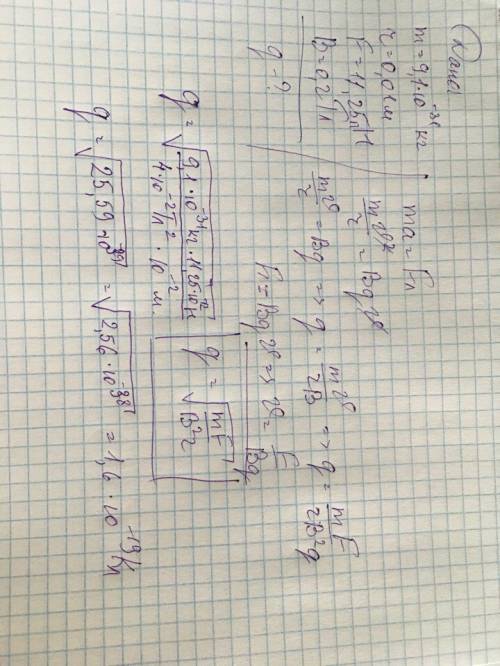 Дано:
m = 9,1·10⁻³¹ кг
r = 0,01 м
F = 11,25 пН
B = 0,2 Тл
q - ?
ma = Fл
mv²/r = Bqv
mv/r = Bq => q = mv/rB => q = mF/rB²q
Fл = Bqv => v = F/Bq
q = √(mF/B²r)
q = √(9,1·10⁻³¹ кг · 11,25·10⁻¹² Н / 4·10⁻² Тл² · 10⁻² м.)
q = √(25,59·10⁻³⁹) = √(2,56·10⁻³⁸) = 1,6·10⁻¹⁹ Кл